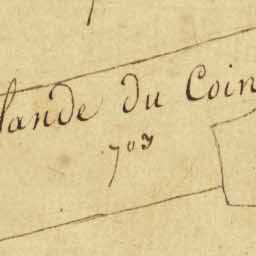 lande du Coin
703